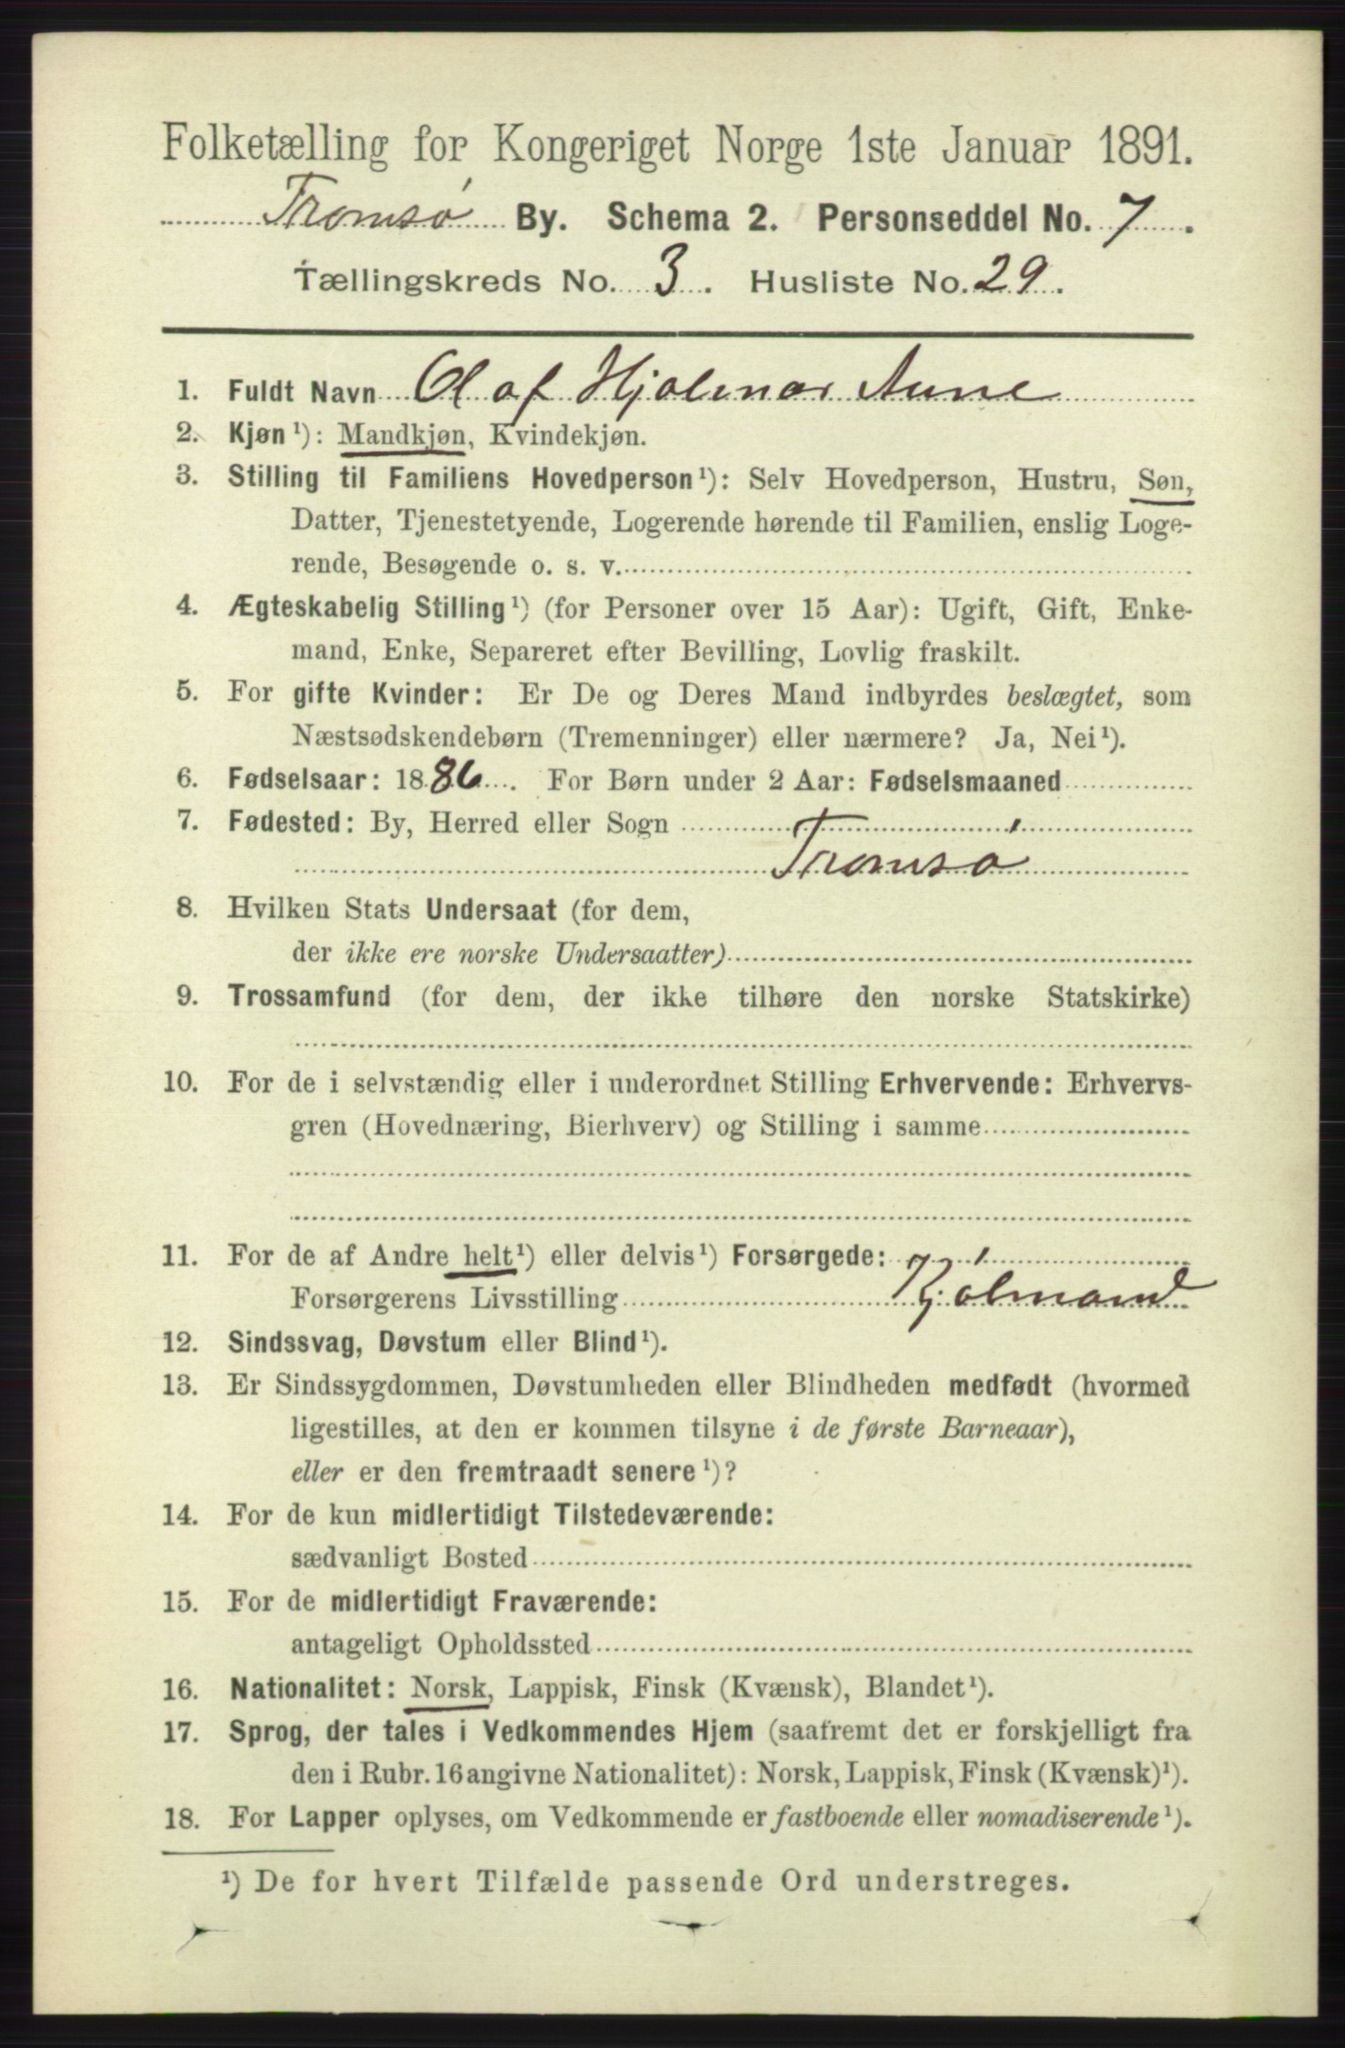 Folketælling for Kongeriget Norge 1ste Januar 1891.
Tromsø By. Schema 2. Personseddel No. 7.
Tællingskreds No. 3. Husliste No. 29.
1. Fuldt Navn Olaf Hjalmar Aune
2. Kjøn¹): Mandkjøn, Kvindekjøn.
3. Stilling til Familiens Hovedperson¹): Selv Hovedperson, Hustru, Søn,
Datter, Tjenestetyende, Logerende hørende til Familien, enslig Loge-
rende, Besøgende o. s. v.
4. Ægteskabelig Stilling¹) (for Personer over 15 Aar): Ugift, Gift, Enke-
mand, Enke, Separeret efter Bevilling, Lovlig fraskilt.
5. For gifte Kvinder: Er De og Deres Mand indbyrdes beslægtet, som
Næstsødskendebørn (Tremenninger) eller nærmere? Ja, Nei¹).
6. Fødselsaar: 1886. For Børn under 2 Aar: Fødselsmaaned
7. Fødested: By, Herred eller Sogn
Tromsø
8. Hvilken Stats Undersaat (for dem,
der ikke ere norske Undersaatter)
9. Trossamfund (for dem, der ikke tilhøre den norske Statskirke)
10. For de i selvstændig eller i underordnet Stilling Erhvervende: Erhvervs-
gren (Hovednæring, Bierhverv) og Stilling i samme
11. For de af Andre helt¹) eller delvis¹) Forsørgede:
Forsørgerens Livsstilling Kjølmand
12. Sindssvag, Døvstum eller Blind¹).
13. Er Sindssygdommen, Døvstumheden eller Blindheden medfødt (hvormed
ligestilles, at den er kommen tilsyne i de første Barneaar),
eller er den fremtraadt senere¹)?
14. For de kun midlertidigt Tilstedeværende:
sædvanligt Bosted
15. For de midlertidigt Fraværende:
antageligt Opholdssted
16. Nationalitet: Norsk, Lappisk, Finsk (Kvænsk), Blandet¹).
17. Sprog, der tales i Vedkommendes Hjem (saafremt det er forskjelligt fra
den i Rubr. 16 angivne Nationalitet): Norsk, Lappisk, Finsk (Kvænsk)¹).
18. For Lapper oplyses, om Vedkommende er fastboende eller nomadiserende¹).
¹) De for hvert Tilfælde passende Ord understreges.